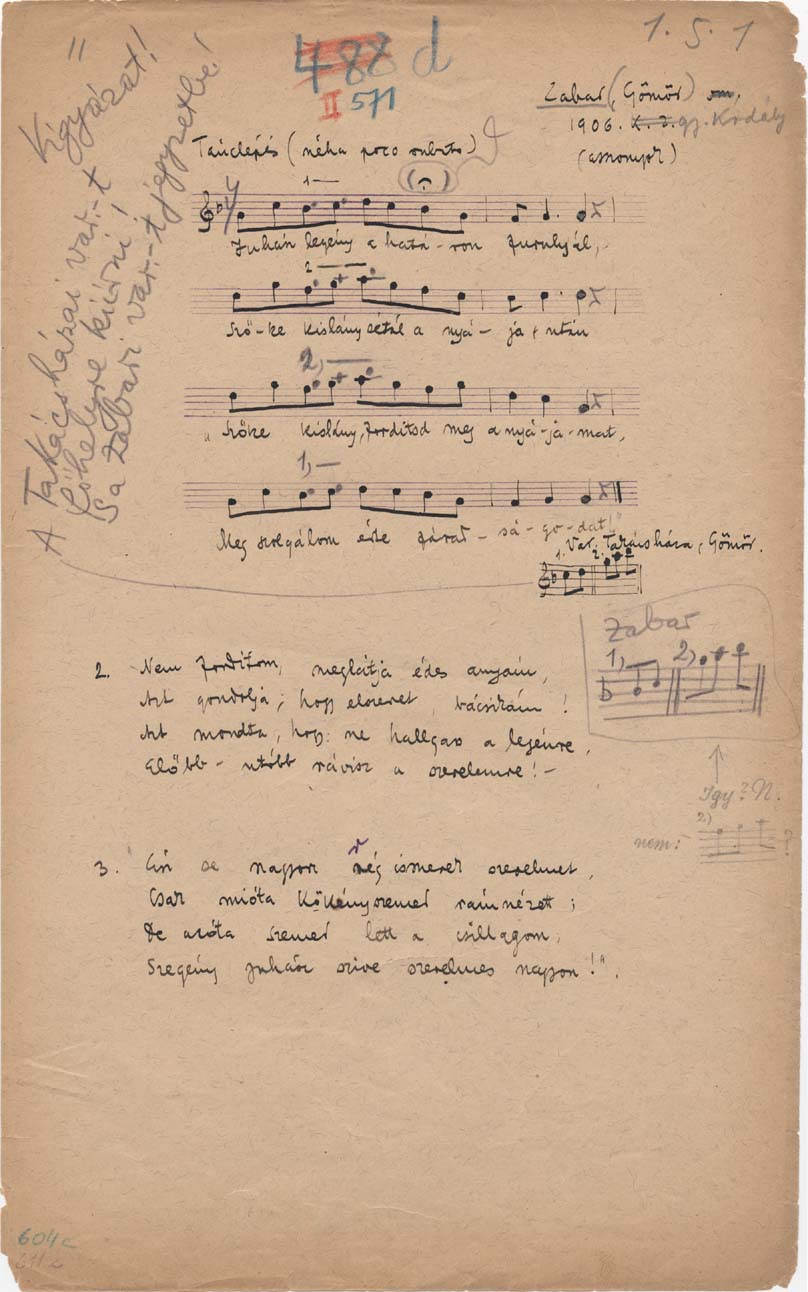 "
Vigyázat!
A Takácsházai var.-t
főhelyre kiírni!
S a zabari var.-t jegyzetbe!
488 d
II 571
1. 5. 1
Zabar (Gömör)
1906. K. Z. gy. Kodály
(asszonyok)
Tánclépés (néha poco rubato)
1
Juhász legény a hatá-ron furulyál,
2
Sző-ke kislány sétál a nyá-ja után
2,
„Szőke kislány, fordítsd meg a nyá-ja-mat,
1,
Meg szolgálom érte fárad-sá-go-dat!"
Var. Takácsháza, Gömör.
1. 2.
Zabar
1, 2,
2. Nem fordítom, meglátja édes anyám,
Azt gondolja, hogy elszeret, bácsikám!
Azt mondta, hogy: ne hallgass a legényre,
Előbb-utóbb rávisz a szerelemre!-
Igy? N.
2)
nem: ?
3. Én se nagyon rég ismerek szerelmet,
Csak mióta kökényszemed rám nézett;
De azóta szemed lett a csillagom,
Szegény juhász szive szerelmes nagyon!".
604c